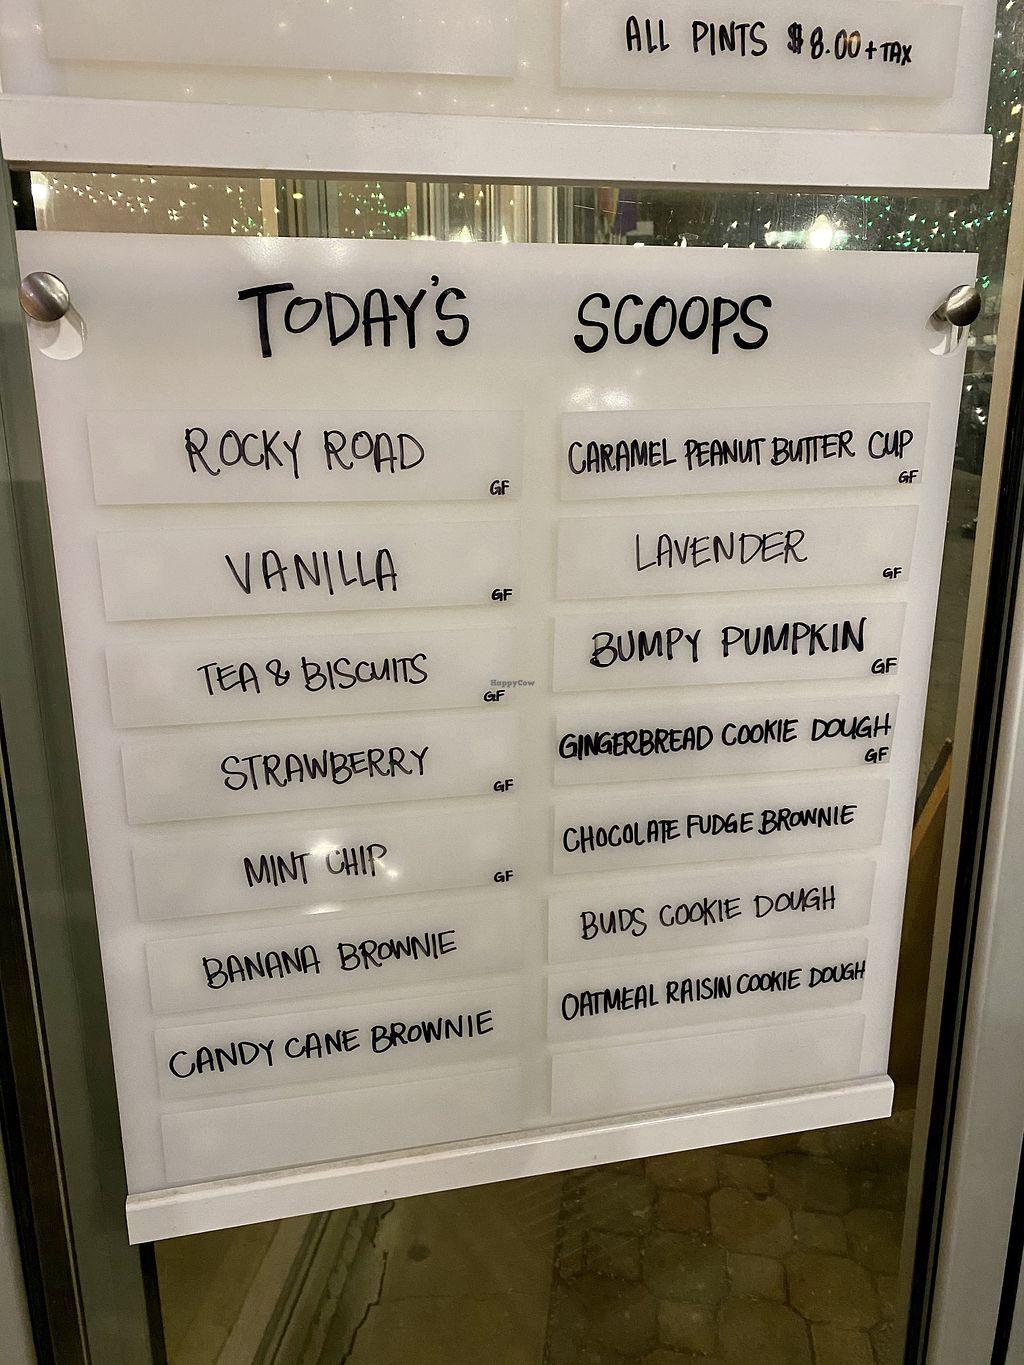 ALL PINTS $8.00 + TAX
TODAY'S SCOOPS
ROCKY ROAD
GF
VANILLA
GF
TEA & BISCUITS
GF
STRAWBERRY
GF
MINT CHIP
GF
BANANA BROWNIE
CANDY CANE BROWNIE
CARAMEL PEANUT BUTTER CUP
GF
LAVENDER
GF
BUMPY PUMPKIN
GF
GINGERBREAD COOKIE DOUGH
GF
CHOCOLATE FUDGE BROWNIE
BUDS COOKIE DOUGH
OATMEAL RAISIN COOKIE DOUGH
HappyCow